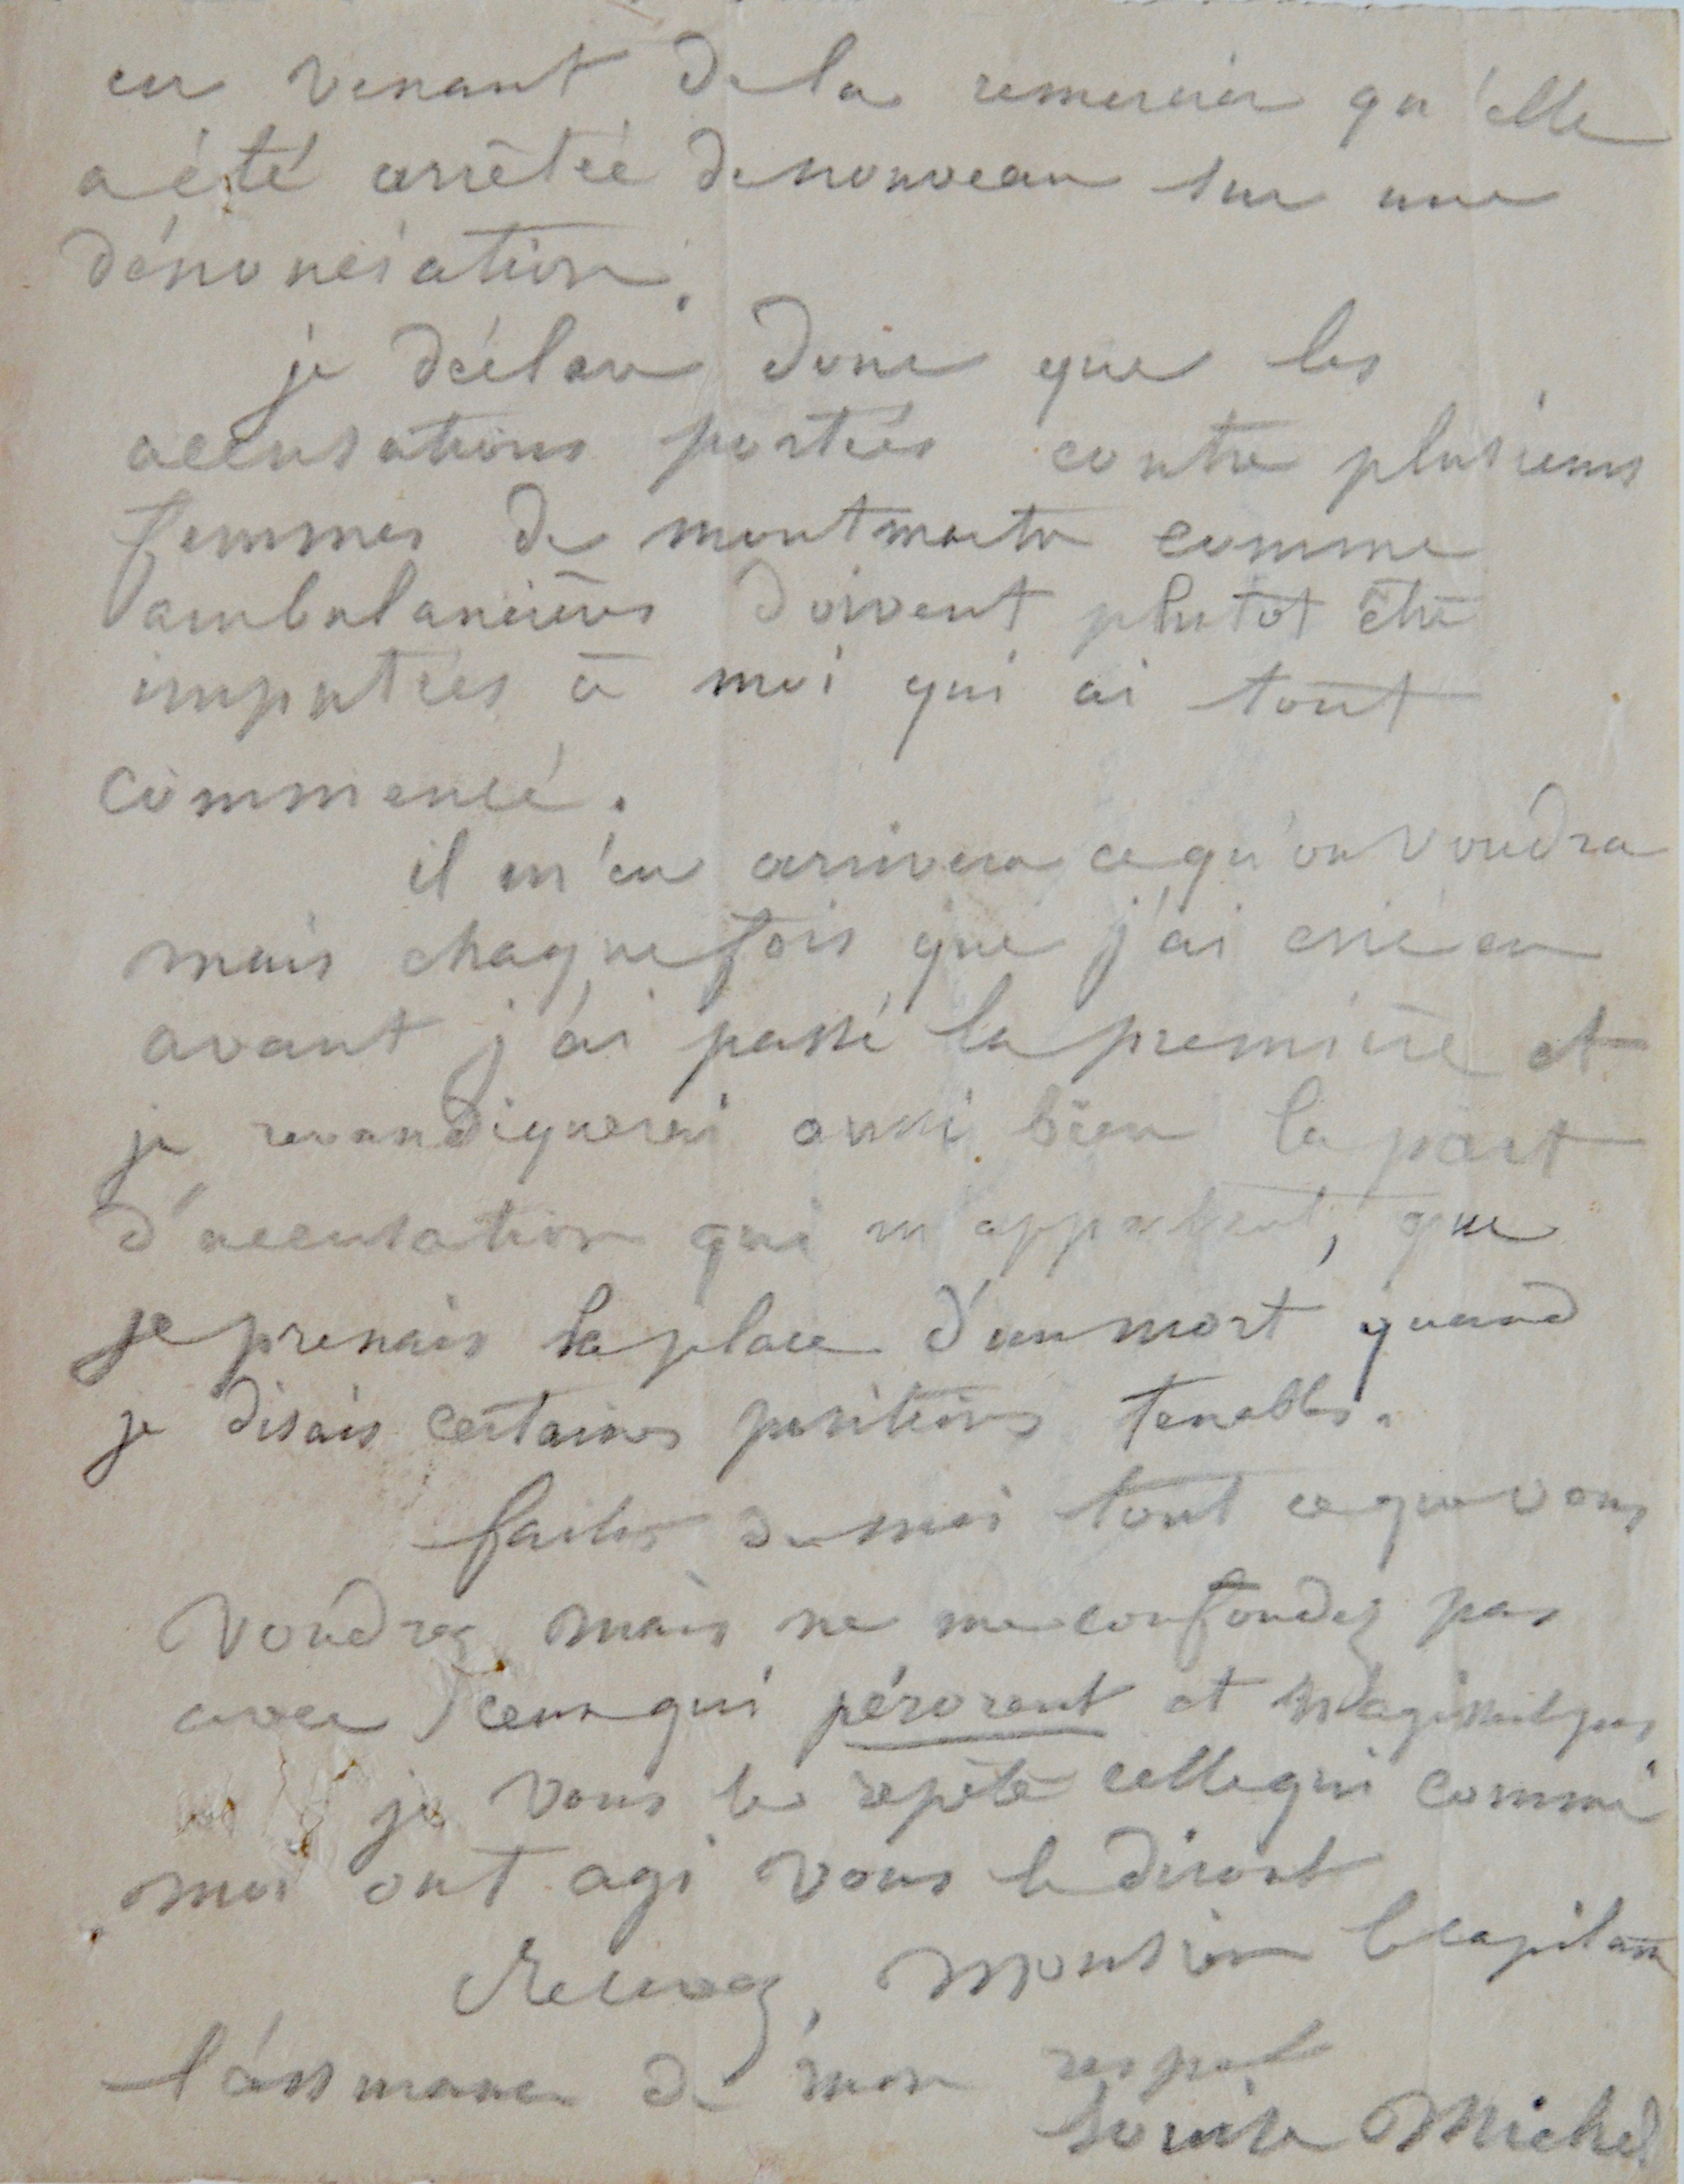 en venant de la remercier qu'elle
a été arrêtée de nouveau sur une
dénonciation.
je déclare donc que les
accusations portées contre plusieurs
femmes de montmartre comme
ambulancières doivent plutôt être
imputées à moi qui ai tout
commencé.
il m'en arrivera ce qu'on voudra
mais chaque fois que j'ai crié en
avant j'ai passé la première et
je revandiquerai aussi bien la part
d'accusation qui m'appartient, que
je prenais la place d'un mort quand
je disais certaines positions tenables.
faites de moi tout ce que vous
voudrez mais ne me confondez pas
avec ceux qui pérorent et n'agissent pas
je vous le répète celle qui comme
moi ont agi vous le diront
Recevez, Monsieur le capitaine
l'assurance de mon respect
Louise Michel